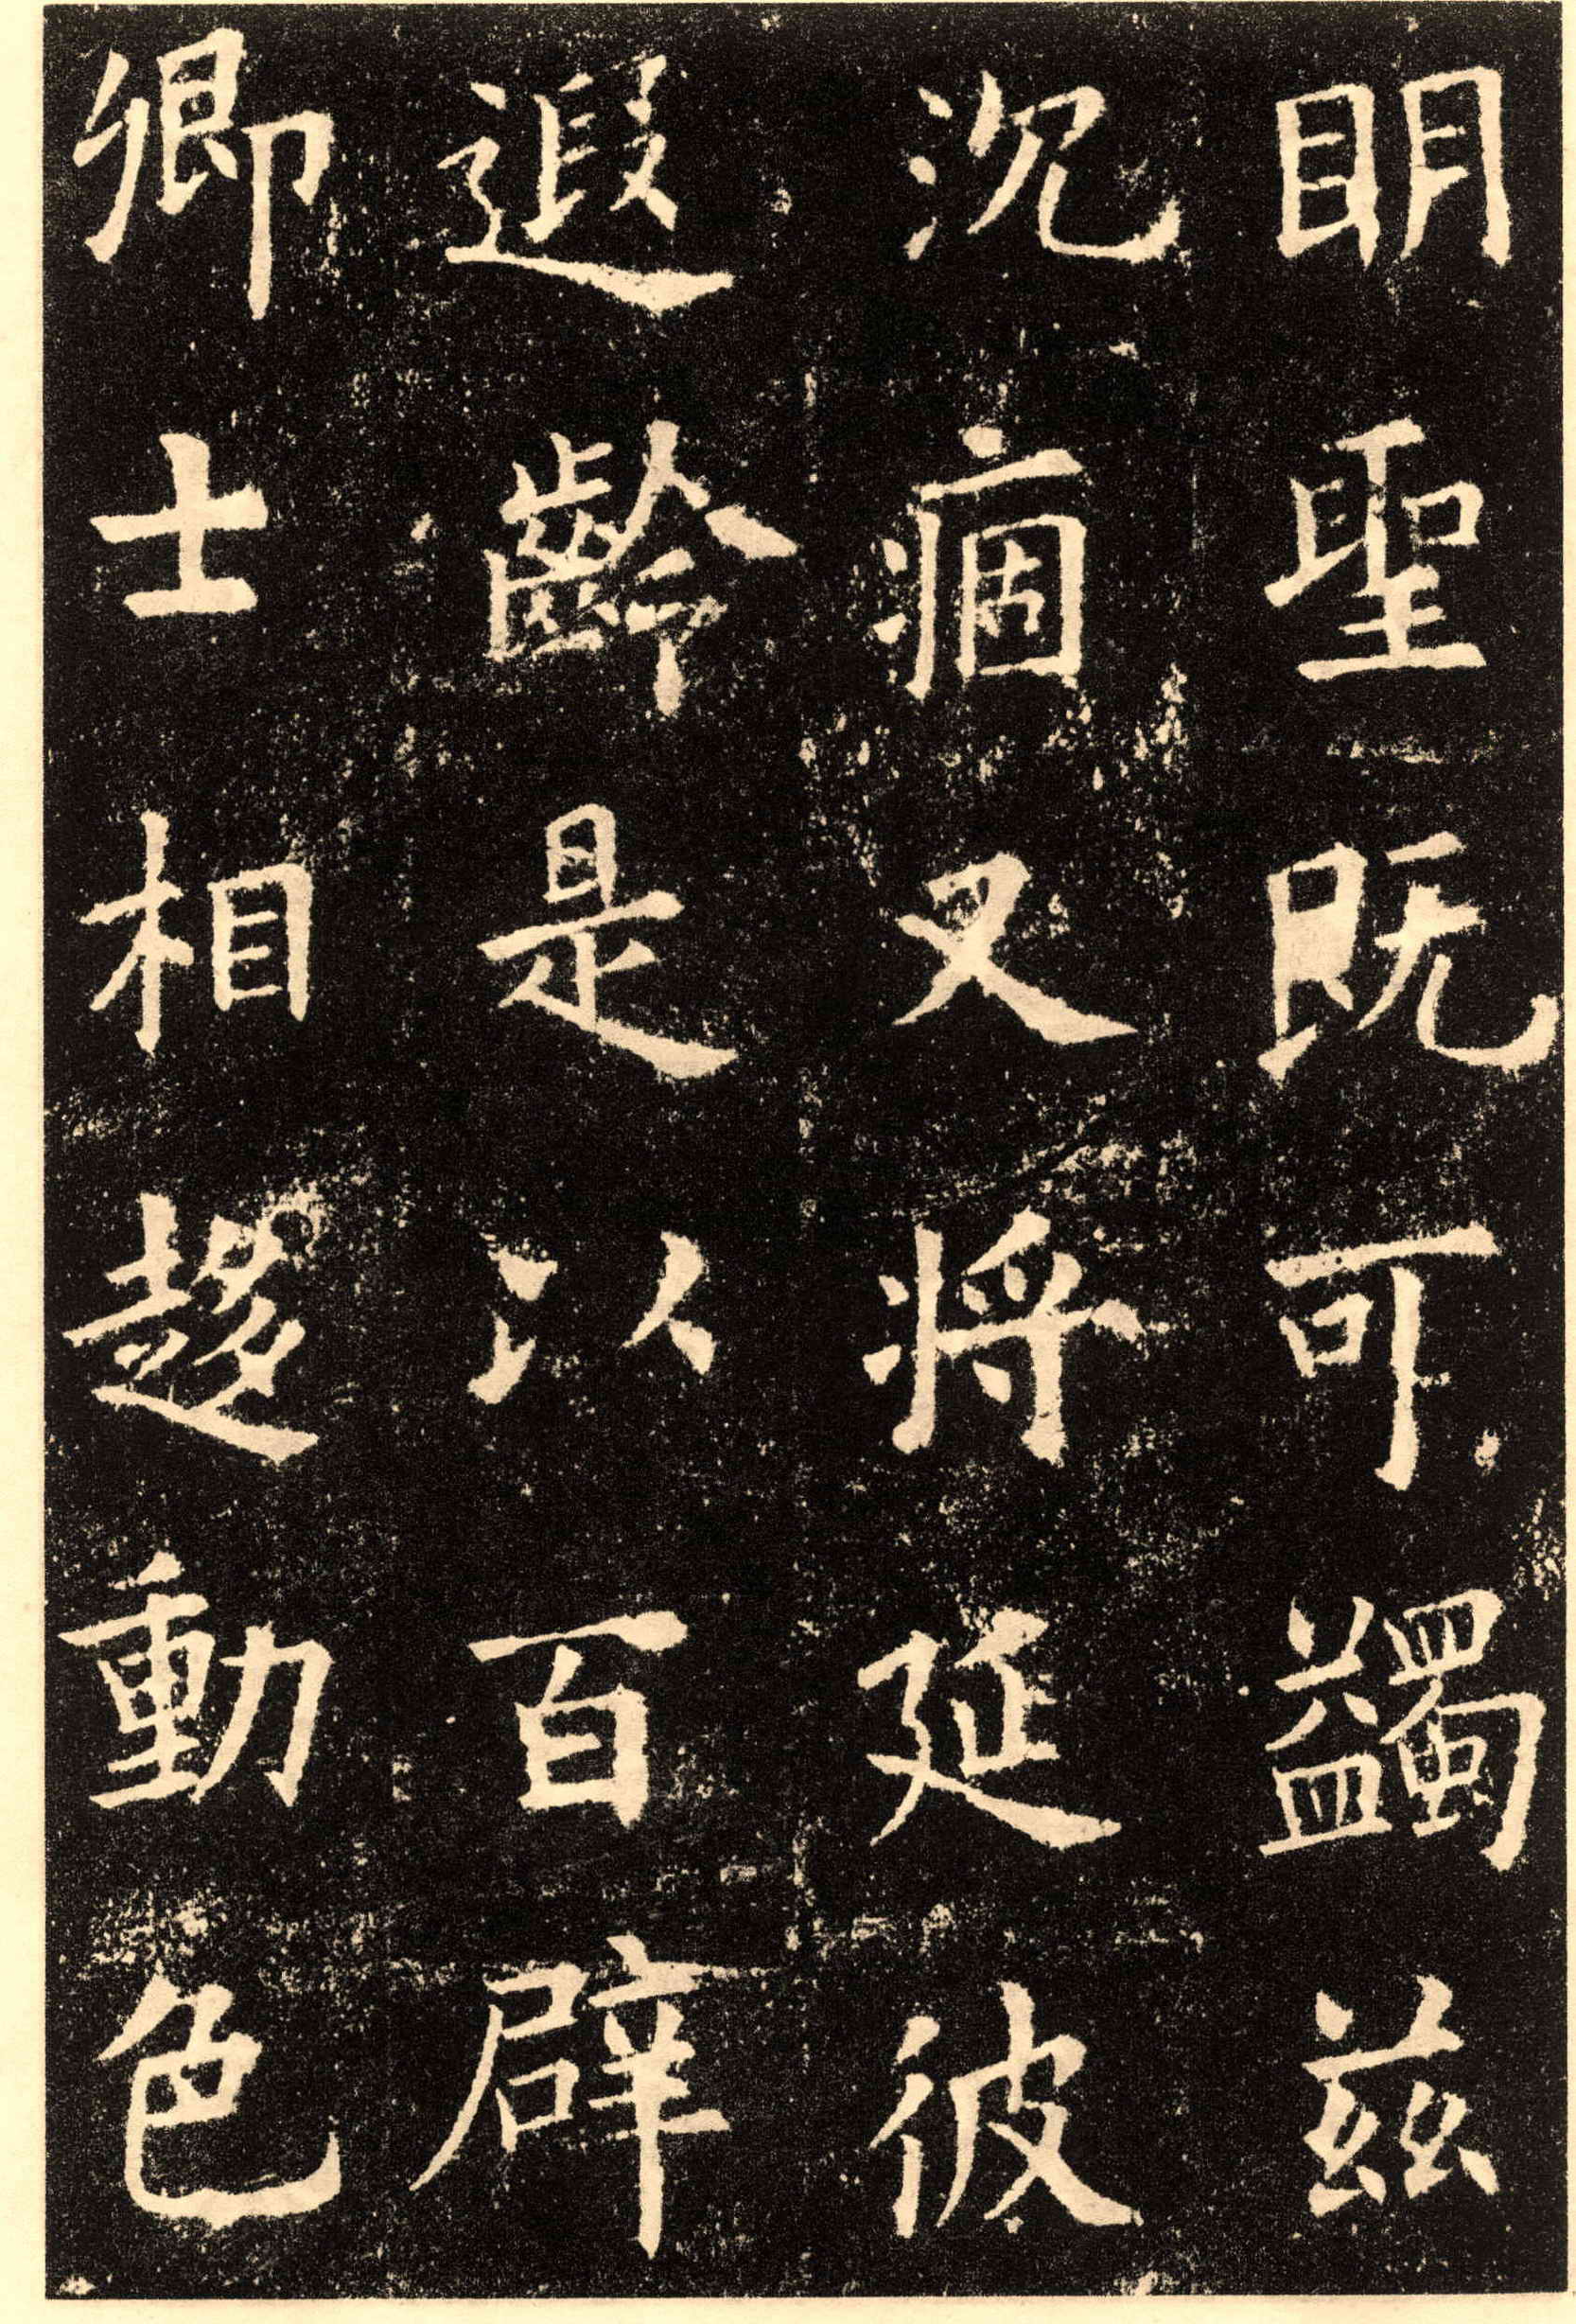 眀聖既可蠲茲
沉痼又將延彼
遐齡是以百辟
卿士相趍動色